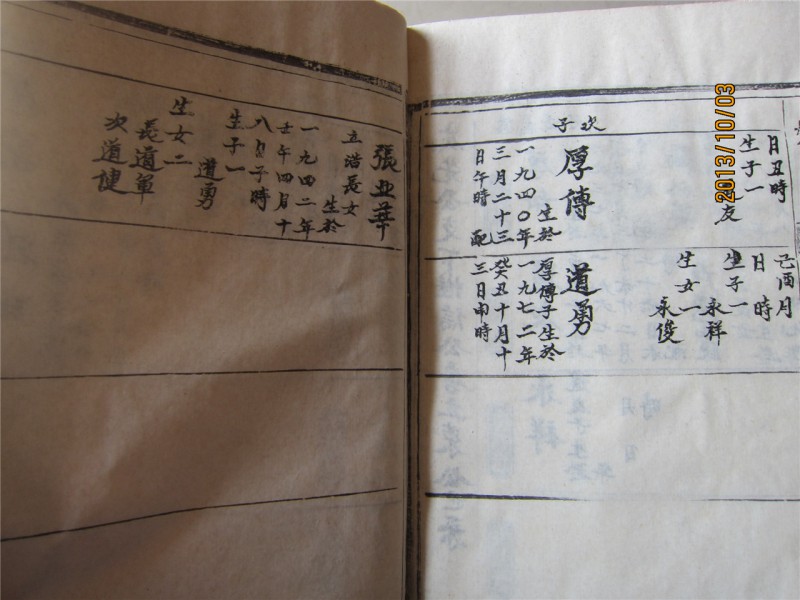 日丑時
生子一
友
次子
厚傳
生於
一九四〇年
三月二十三
日午時 配
己酉月
日 時
生子一
永祥
生女一
永俊
道勇
厚傳子生於
一九七二年
癸丑十月十
三日申時
張亚華
立浩長女
生於
一九四二年
壬午四月十
八日子時
生子一
道勇
生女二
長道軍
次道健
2013/10/03